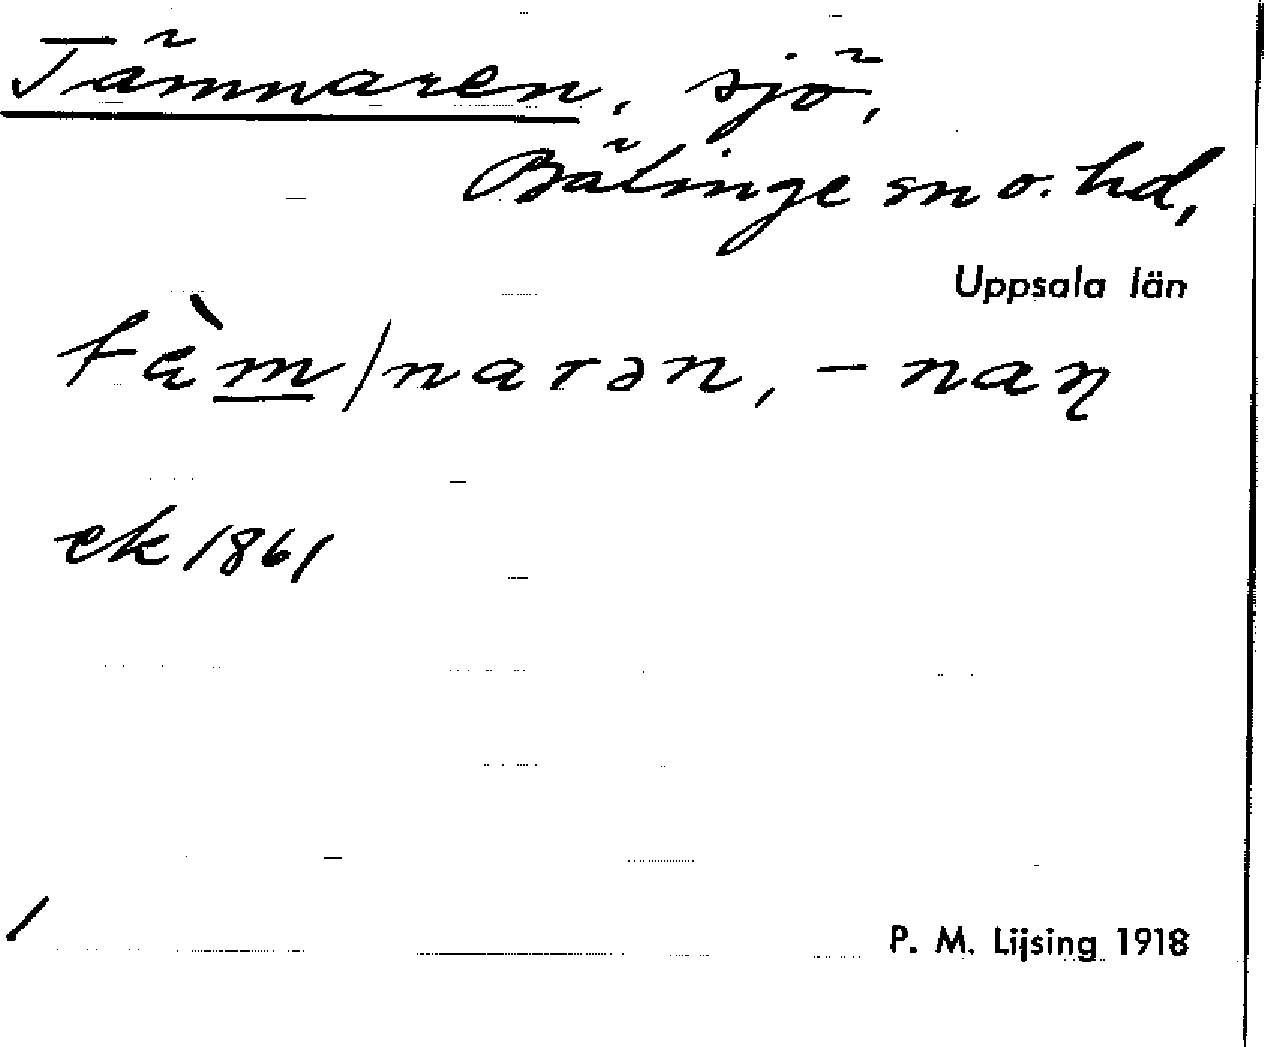 Tämnaren, sjö,
Bälinge sn o. hd,
Uppsala län
tὰm/narən, -naɳ
ek 1861
/
P. M. Lijsing 1918